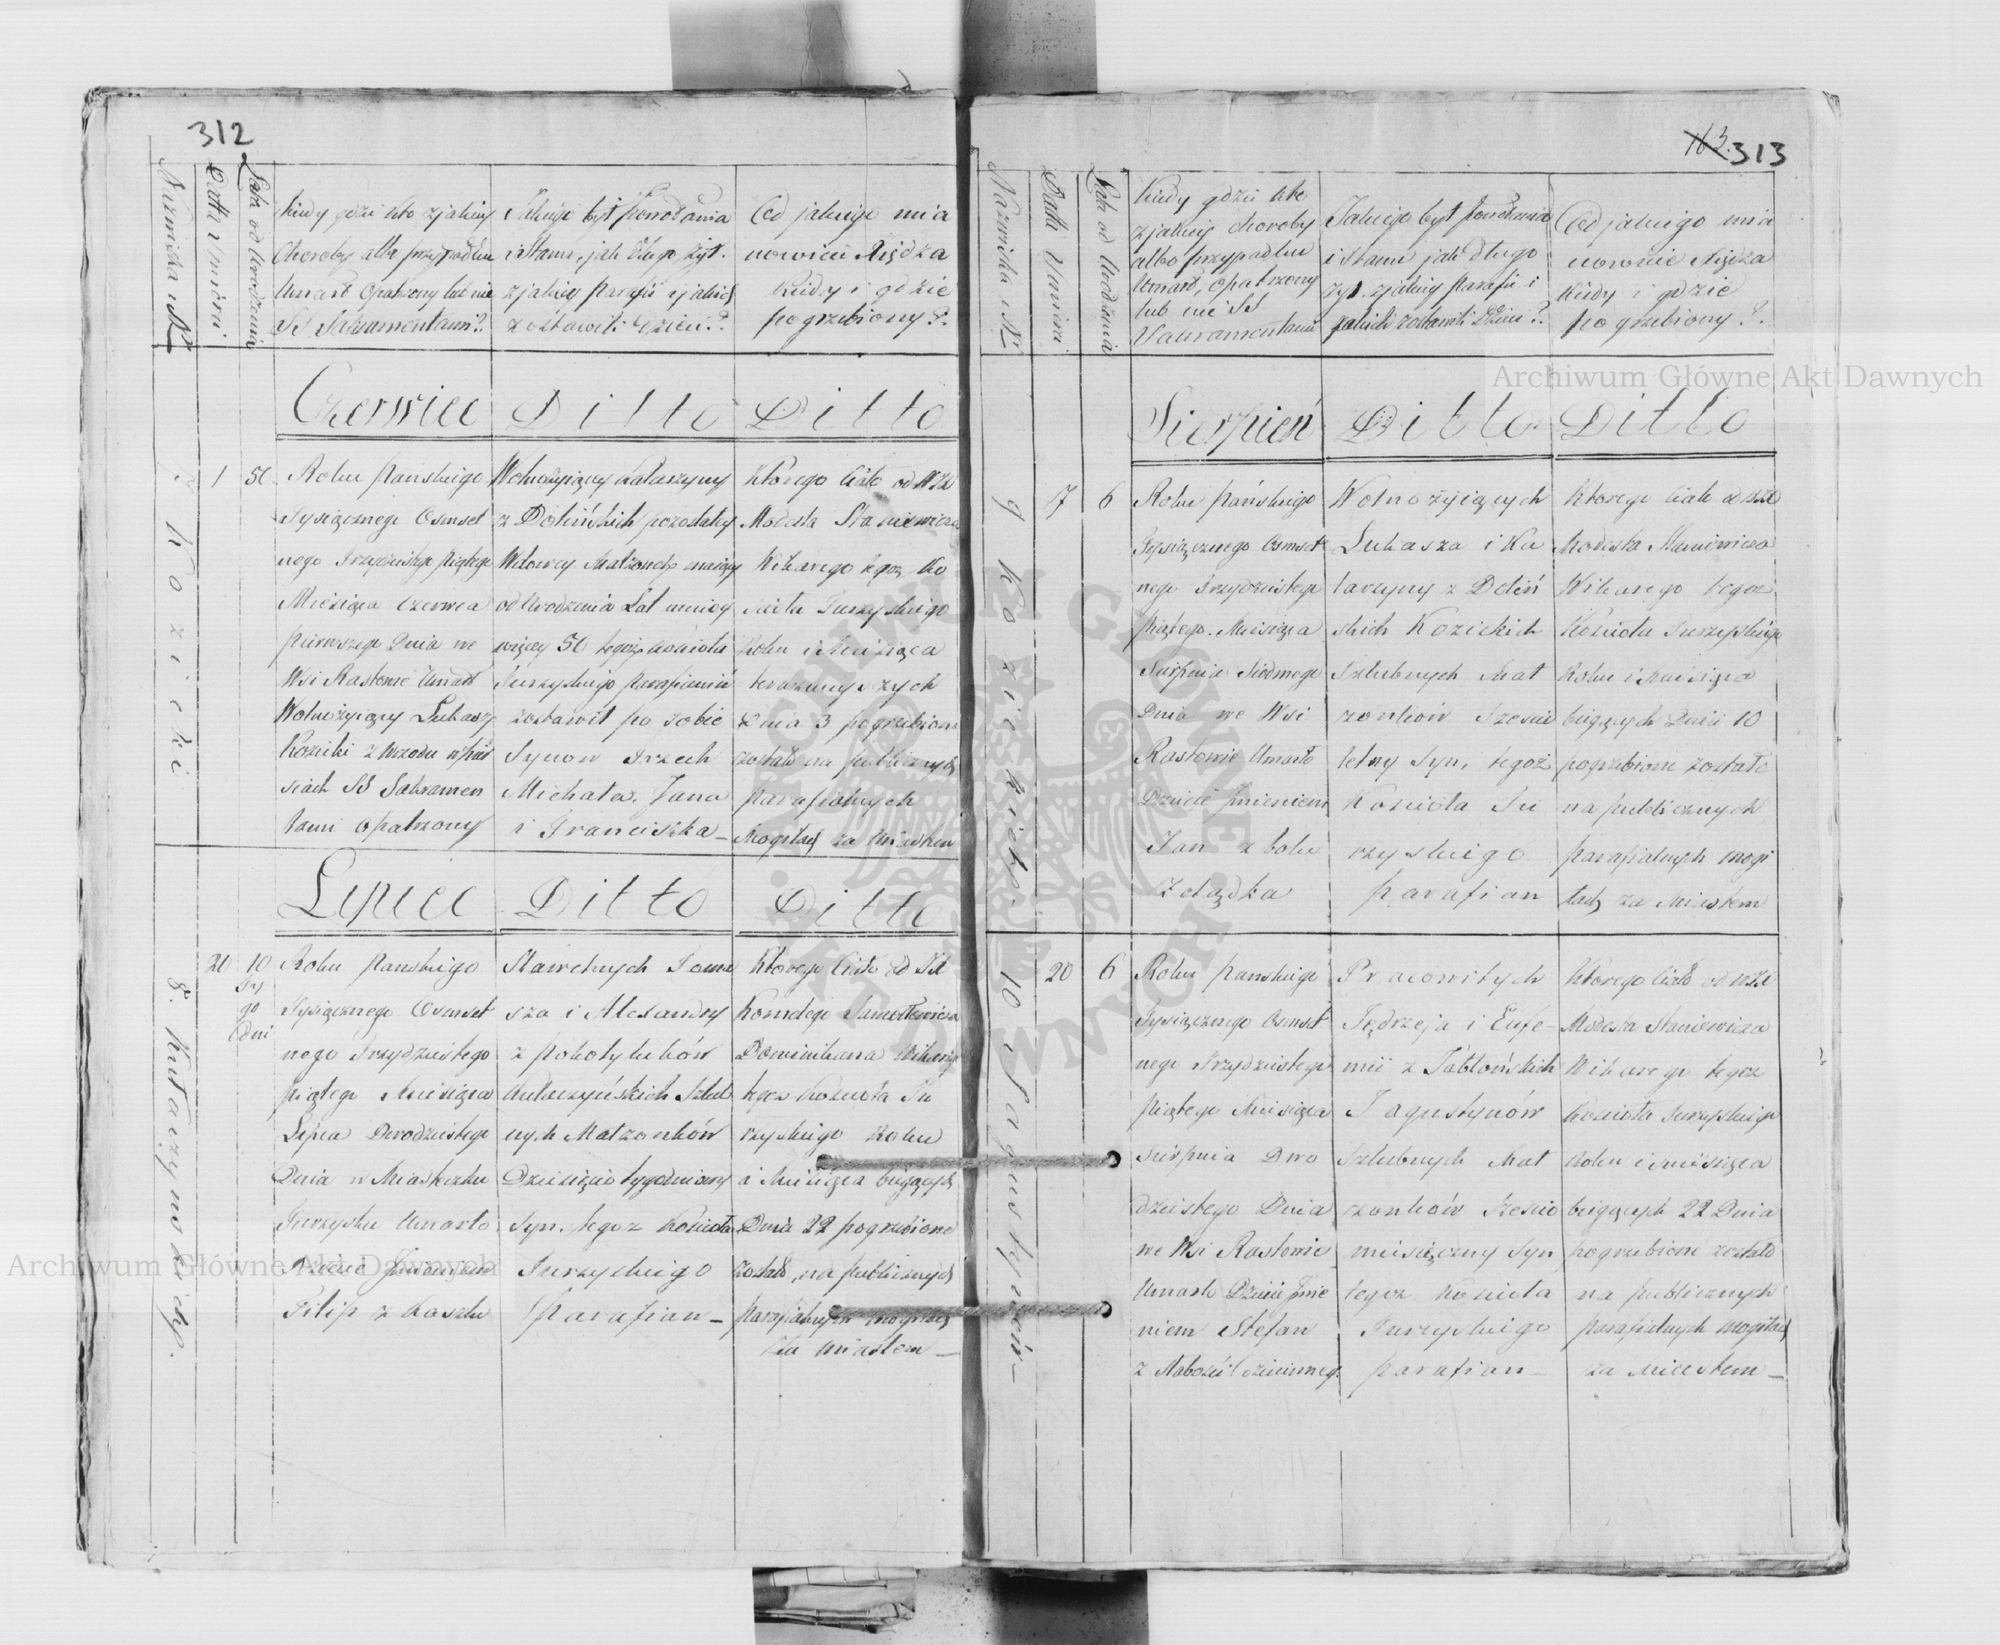 312
Nazwiska i N°
Data Umarci
Lata od Urodzenia
Kiedy gdzie kto z jakiey
Choroby albo przypadku
Umarł Opatrzony lub nie
SS Sakramentami?.
Jakiego był Powołania
i Stanu, jak długo żył.
z jakiey Parafii i jakich
zostawił Dzieci?.
Od jakiego mia
nowicie Xiędza
Kiedy i gdzie
pogrzebiony?.
Czerwiec Ditto Ditto
7. Kozicki
1
50
Roku Pańskiego
Tysiącznego Osmset
nego Trzydziestego Piątego
Miesiąca Czerwca
pierwszego Dnia we
Wsi Rastowie Umarł
Wolnożyjący Łukasz
Kozicki z Wrzodu w
SS Sakramen
tami opatrzony
Wolnożyjącey Katarzyny
z Dolińskich pozostałey
Wdowy Małżonek maiący
od Urodzenia Lat mniey
więcey 50 tegoż Kościoła
Turzyskiego Parafianin
zostawił po sobie
Synow Trzech
Michała, Jana
i Franciszka –
Którego Ciało od WX
Modesta Staniewicza
Wikarego tegoż Ko
ścioła Turzyskiego
Roku i Miesiąca
teraznieyszych
Dnia 3 pogrzebione
zostało na publicznych
parafialnych
Mogiłach za Miastem
Lipiec Ditto Ditto
8. Kułaczynskich.
20
10
Ty
go
dni
Roku Pańskiego
Tysiącznego Osmset
nego Trzydziestego
Piątego Miesiąca
Lipca Dwudziestego
Dnia w Miasteczku
Turzysku Umarło
Dziecie Imieniem
Filip z Kaszlu
Sławetnych Toma
sza i Alexandry
z Pokotyluków
Kułaczyńskich Szlub
nych Małzonków
Dziesięciotygodniowy
Syn. tegoz Kościoła
Turzyskiego
Parafian –
Którego Ciało od
Dominikana Wikarego
tegoz Kościoła Tu
rzyskiego Roku
i Miesiąca bieżących
Dnia 22 pogrzebione
zostało, na publicznych
parafialnych mogiłach
Za Miastem –
313
Nazwiska i N°
Data Umarci
Lata od Urodzenia
Kiedy gdzie kto
z jakiey choroby
albo przypadku
Umarł, opatrzony
lub nie SS
Sakramentami
Jakiego był Powołania
i Stanu jak długo
żył. z jakiey Parafii i
jakich zostawił Dzieci?.
Od jakiego mia
nowicie Xiędza
Kiedy i gdzie
pogrzebiony?.
Sierpień Ditto Ditto
9 Kozickich.
7
6
Roku Pańskiego
Tysiącznego Osmset
nego Trzydziestego
Piątego. Miesiąca
Sierpnia Siodmego
Dnia we Wsi
Rastowie Umarło
Dziecie Imieniem
Jan z bolu
Zolądka
Wolnożyjących
Łukasza i Ka
tarzyny z Doliń
skich Kozickich
Szlubnych Mał
zonków Szescio
letny Syn, tegoż
Kościoła Tu
rzyskiego
Parafian
Którego Ciało od WX
Modesta Staniewicza
Wikarego tegoż
Kościoła Turzyskiego
Roku i Miesiąca
bieżących Dnia 10
pogrzebione zostało
na publicznych
parafialnych mogi
łach za Miastem
10 Jagustynów –
20
6
Roku Pańskiego
Tysiącznego Osmset
nego Trzydziestego
Piątego Miesiąca
Sierpnia Dwu
dziestego Dnia
we Wsi Rastowie
Umarło Dziecie Imie
niem Stefan
z Słabości dzieinney.
Pracowitych
Jędrzeja i Eufe-
mii z Jabłońskich
Jagustynów
Szlubnych Mał
zonków Szescio
miesięczny Syn
tegoz Kościoła
Turzyskiego
parafian –
Którego Ciało od WX
Modesta Staniewicza
Wikarego tegoz
Kościoła Turzyskiego
Roku i miesiąca
bieżących 22 Dnia
pogrzebione zostało
na publicznych
parafialnych mogiłach
za Miastem –
Archiwum Główne Akt Dawnych
Archiwum Główne Akt Dawnych